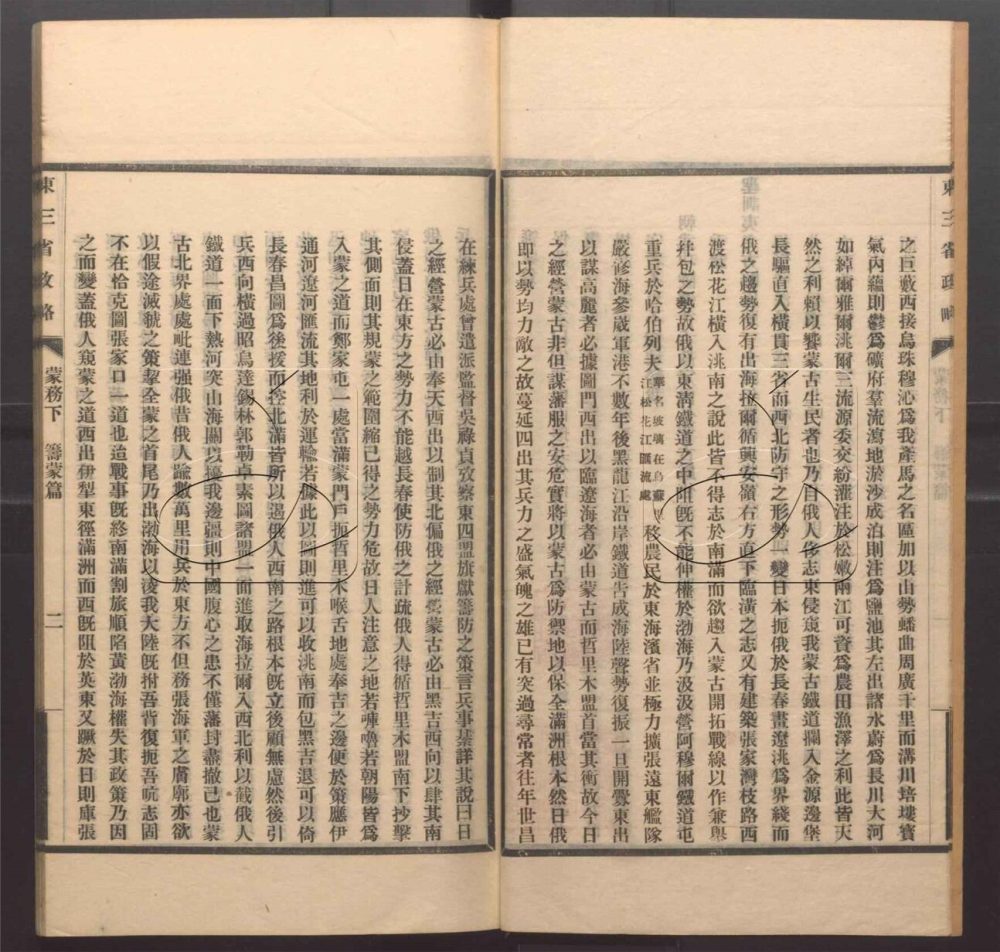 東三省政略
蒙務下　籌蒙篇
之巨藪西接烏珠穆沁爲我產馬之名區加以山勢蟠曲周廣千里而溝川培塿寶
氣內蘊則鬱爲礦府羣流瀉地淤沙成泊則注爲鹽池其左出諸水蔚爲長川大河
如綽爾雅爾洮爾三流源委交紛灌注於松嫩兩江可資爲農田漁澤之利此皆天
然之利賴以豢蒙古生民者也乃自俄人侈志東侵窺我蒙古鐵道攔入金源邊堡
長驅直入橫貫三省而西北防守之形勢一變日本扼俄於長春畫遼洮爲界綫而
俄之趨勢復有出海拉爾循興安嶺右方直下臨潢之志又有建築張家灣枝路西
渡松花江橫入洮南之說此皆不得志於南滿而欲趨入蒙古開拓戰線以作兼舉
幷包之勢故俄以東清鐵道之中阻旣不能伸權於渤海乃汲汲營阿穆爾鐵道屯
重兵於哈伯列夫華名玻璃在烏蘇江松花江匯流處移農民於東海濱省並極力擴張遠東艦隊
嚴修海參崴軍港不數年後黑龍江沿岸鐵道告成海陸聲勢復振一旦開釁東出
以謀高麗者必據圖門西出以臨遼海者必由蒙古而哲里木盟首當其衝故今日
之經營蒙古非但謀藩服之安危實將以蒙古爲防禦地以保全滿洲根本然日俄
卽以勢均力敵之故蔓延四出其兵力之盛氣魄之雄已有突過尋常者往年世昌
在練兵處曾遣派監督吳祿貞攷察東四盟旗獻籌防之策言兵事綦詳其說曰日
之經營蒙古必由奉天西出以制其北偏俄之經營蒙古必由黑吉西向以肆其南
侵蓋日在東方之勢力不能越長春使防俄之計疏俄人得循哲里木盟南下抄擊
其側面則其規蒙之範圍縮已得之勢力危故日人注意之地若㖿嚕若朝陽皆爲
入蒙之道而鄭家屯一處當滿蒙門戶扼哲里木喉舌地處奉吉之邊便於策應伊
通河遼河匯流其地利於運輸若據此以圖則進可以收洮南而包黑吉退可以倚
長春昌圖爲後援而控北滿皆所以遏俄人西南之路根本旣立後顧無慮然後引
兵西向橫過昭烏達錫林郭勒卓素圖諸盟一面進取海拉爾入西北利以截俄人
鐵道一面下熱河突山海關以擾我邊疆則中國腹心之患不僅藩封盡撤已也蒙
古北界處處毗連强俄昔俄人踰數萬里用兵於東方不但務張海軍之膚廓亦欲
以假途滅虢之策挈全蒙之首尾乃出渤海以凌我大陸旣拊吾背復扼吾吭志固
不在恰克圖張家口一道也迨戰事旣終南滿割旅順陷黃渤海權失其政策乃因
之而變蓋俄人窺蒙之道西出伊犁東徑滿洲而西旣阻於英東又蹶於日則庫張
東三省政略
蒙務下　籌蒙篇
二